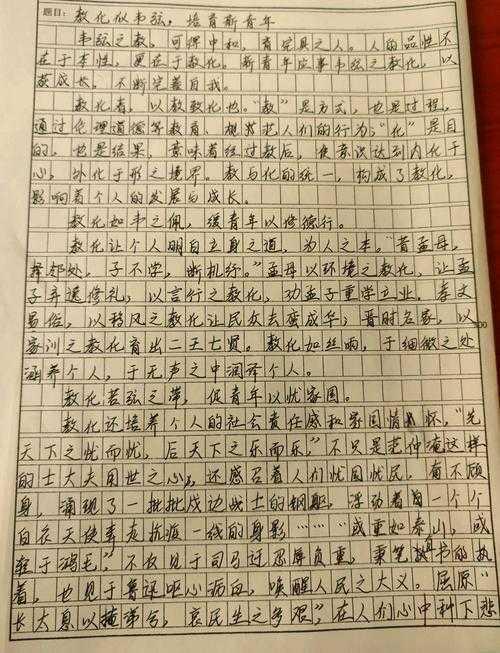 题目：教化似韦弦，培育新青年
韦弦之教，可得中和，育完具之人。人的品性不
在于本性，更在于教化。新青年应事韦弦之教化，以
获成长，不断完善自我。
教化者，以教致化也。“教”是方式，也是过程，
通过伦理道德等教育、规范人们的行为；“化”是目
的，也是结果，意味着经过教后，使意识达到内化于
心，外化于形之境界。教与化的统一，构成了教化，
影响着个人的发展与成长。
教化如韦之佩，缓青年以修德行。
教化让个人明白立身之道，为人之本。“昔孟母，
择邻处，子不学，断机杼。”孟母以环境之教化，让孟
子弃逸修礼；以言行之教化，劝孟子重学立业。孝文
易俗，以移风之教化让民众去蛮成华；晋时名家，以
家训之教化育出二王七贤。教化如丝响，于细微之处
涵养个人，于无声之中润泽个人。
教化若弦之带，促青年以忧家国。
教化还培养个人的社会责任感和家国情怀，“先
天下之忧而忧，后天下之乐而乐，”不只是范仲淹这样
的士大夫用世之心，还感召着人们忧国忧民，奋不顾
身，涌现了一批批戍边战士的钢躯，浮动着每一个个
白衣天使奔走抗疫一线的身影……“或重如泰山，或
轻于鸿毛”，不仅见于司马迁忍辱负重，秉笔直书的执
着，也见于鲁迅呕心沥血，唤醒人民之大义。屈原“
长太息以掩涕兮，哀民生之多艰”，在人们心中种下悲